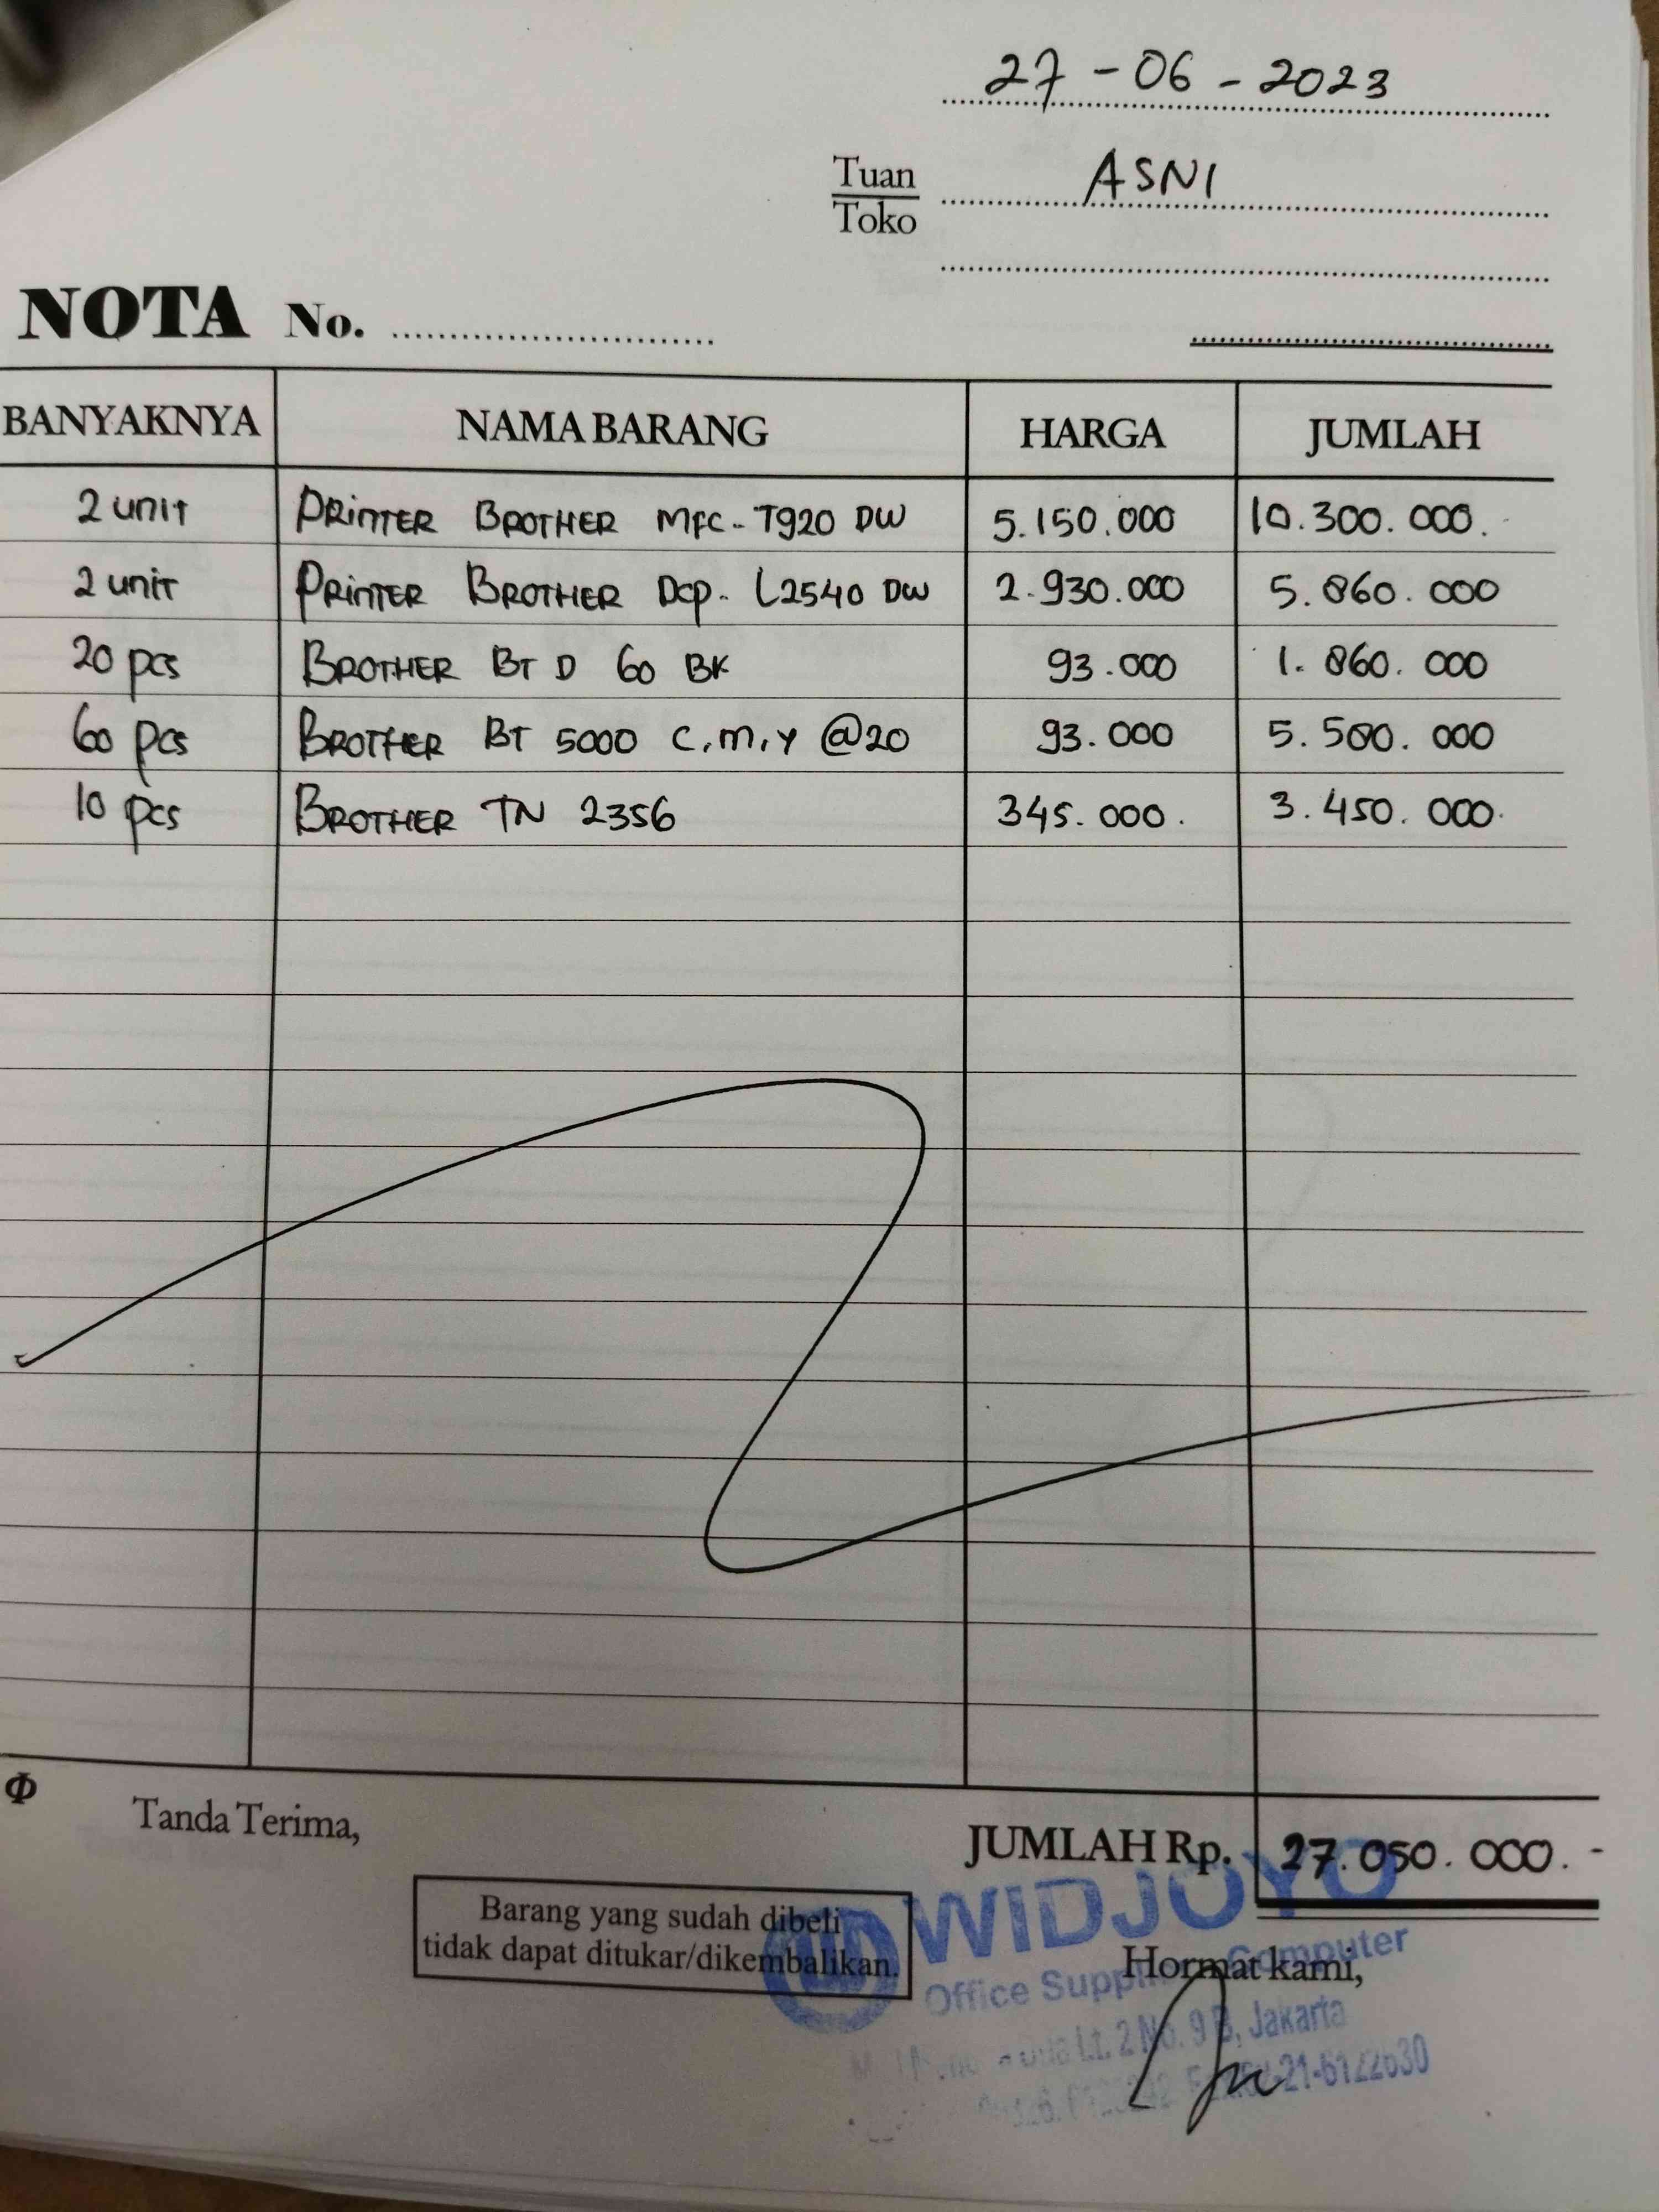 27 - 06 - 2023
Tuan ASNI
Toko
NOTA No.
BANYAKNYA NAMA BARANG HARGA JUMLAH
2 unit PRINTER BROTHER MFC- T920 DW 5.150.000 10.300.000.
2 unit PRINTER BROTHER DCP- L2540 DW 2.930.000 5.860.000
20 pcs BROTHER BT D 60 BK 93.000 1.860.000
60 pcs BROTHER BT 5000 C,M,Y @20 93.000 5.580.000
10 pcs BROTHER TN 2356 345.000. 3.450.000.
Tanda Terima,
JUMLAH Rp. 27.050.000.-
Barang yang sudah dibeli
tidak dapat ditukar/dikembalikan.
WIDJOYO
Hormat kami,
Office Computer
Lt. 2 No. 9 B, Jakarta